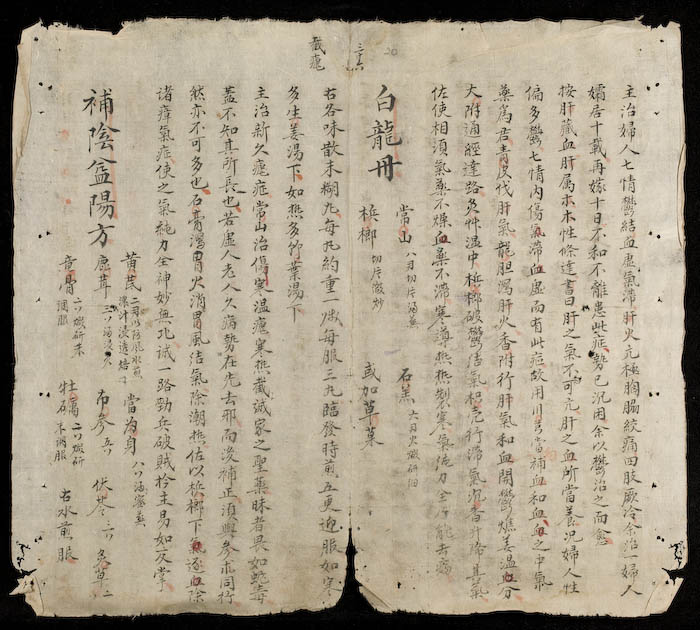 主治婦人七情鬱結血虛氣滯肝火亢極胸膈絞痛四肢厥冷余治一婦人
孀居十載再嫁十日不和不離患此症勢已沉用余以鬱治之而愈
按肝藏血肝属木木性條達書曰肝之氣不可亢肝之血所當養况婦人性
偏多鬱七情内傷氣滯血虛而有此症故用川芎當補血和血血之中氣
藥為君青皮伐肝氣龍胆瀉肝火香附行肝氣和血開鬱燋姜温血分
大附通經達路炙艸温中梹榔破鬱結氣和壳行滯氣沉香升降其氣
佐使相須氣藥不燥血藥不滯寒導熱熱製寒氣佐力全乃能去病
三十六
20
白龍丹
常山 八刃切片酒
石羔 六刃火煅研細
梹榔 切片微炒
或加草菓
截瘧
右各味散末糊丸每丸約重一 每服三丸臨發時前五更迎服如寒
多生姜湯下如熱多竹葉湯下
主治新久瘧症常山治傷寒温瘧寒熱截 家之聖藥昧者畏如蛇毒
蓋不知其所長也若虛人老人久病勢在先去邪而後補正須與參朮同行
然亦不可多也石膏瀉胃火消胃風結氣除潮熱佐以梹榔下氣逐血除
諸瘴氣症使之氣純力全神妙無比誠一路勁兵破賊拾主易如反掌
補陰益陽方
黄芪 二刃以防風水煎濃汁浸透焙干
當沟身 八 酒
鹿茸 三 酒浸久
布參 五
伏苓 三
炙草 二
龍骨 二 煅研末調服
牡礪 二 煅研末調服
右水煎服